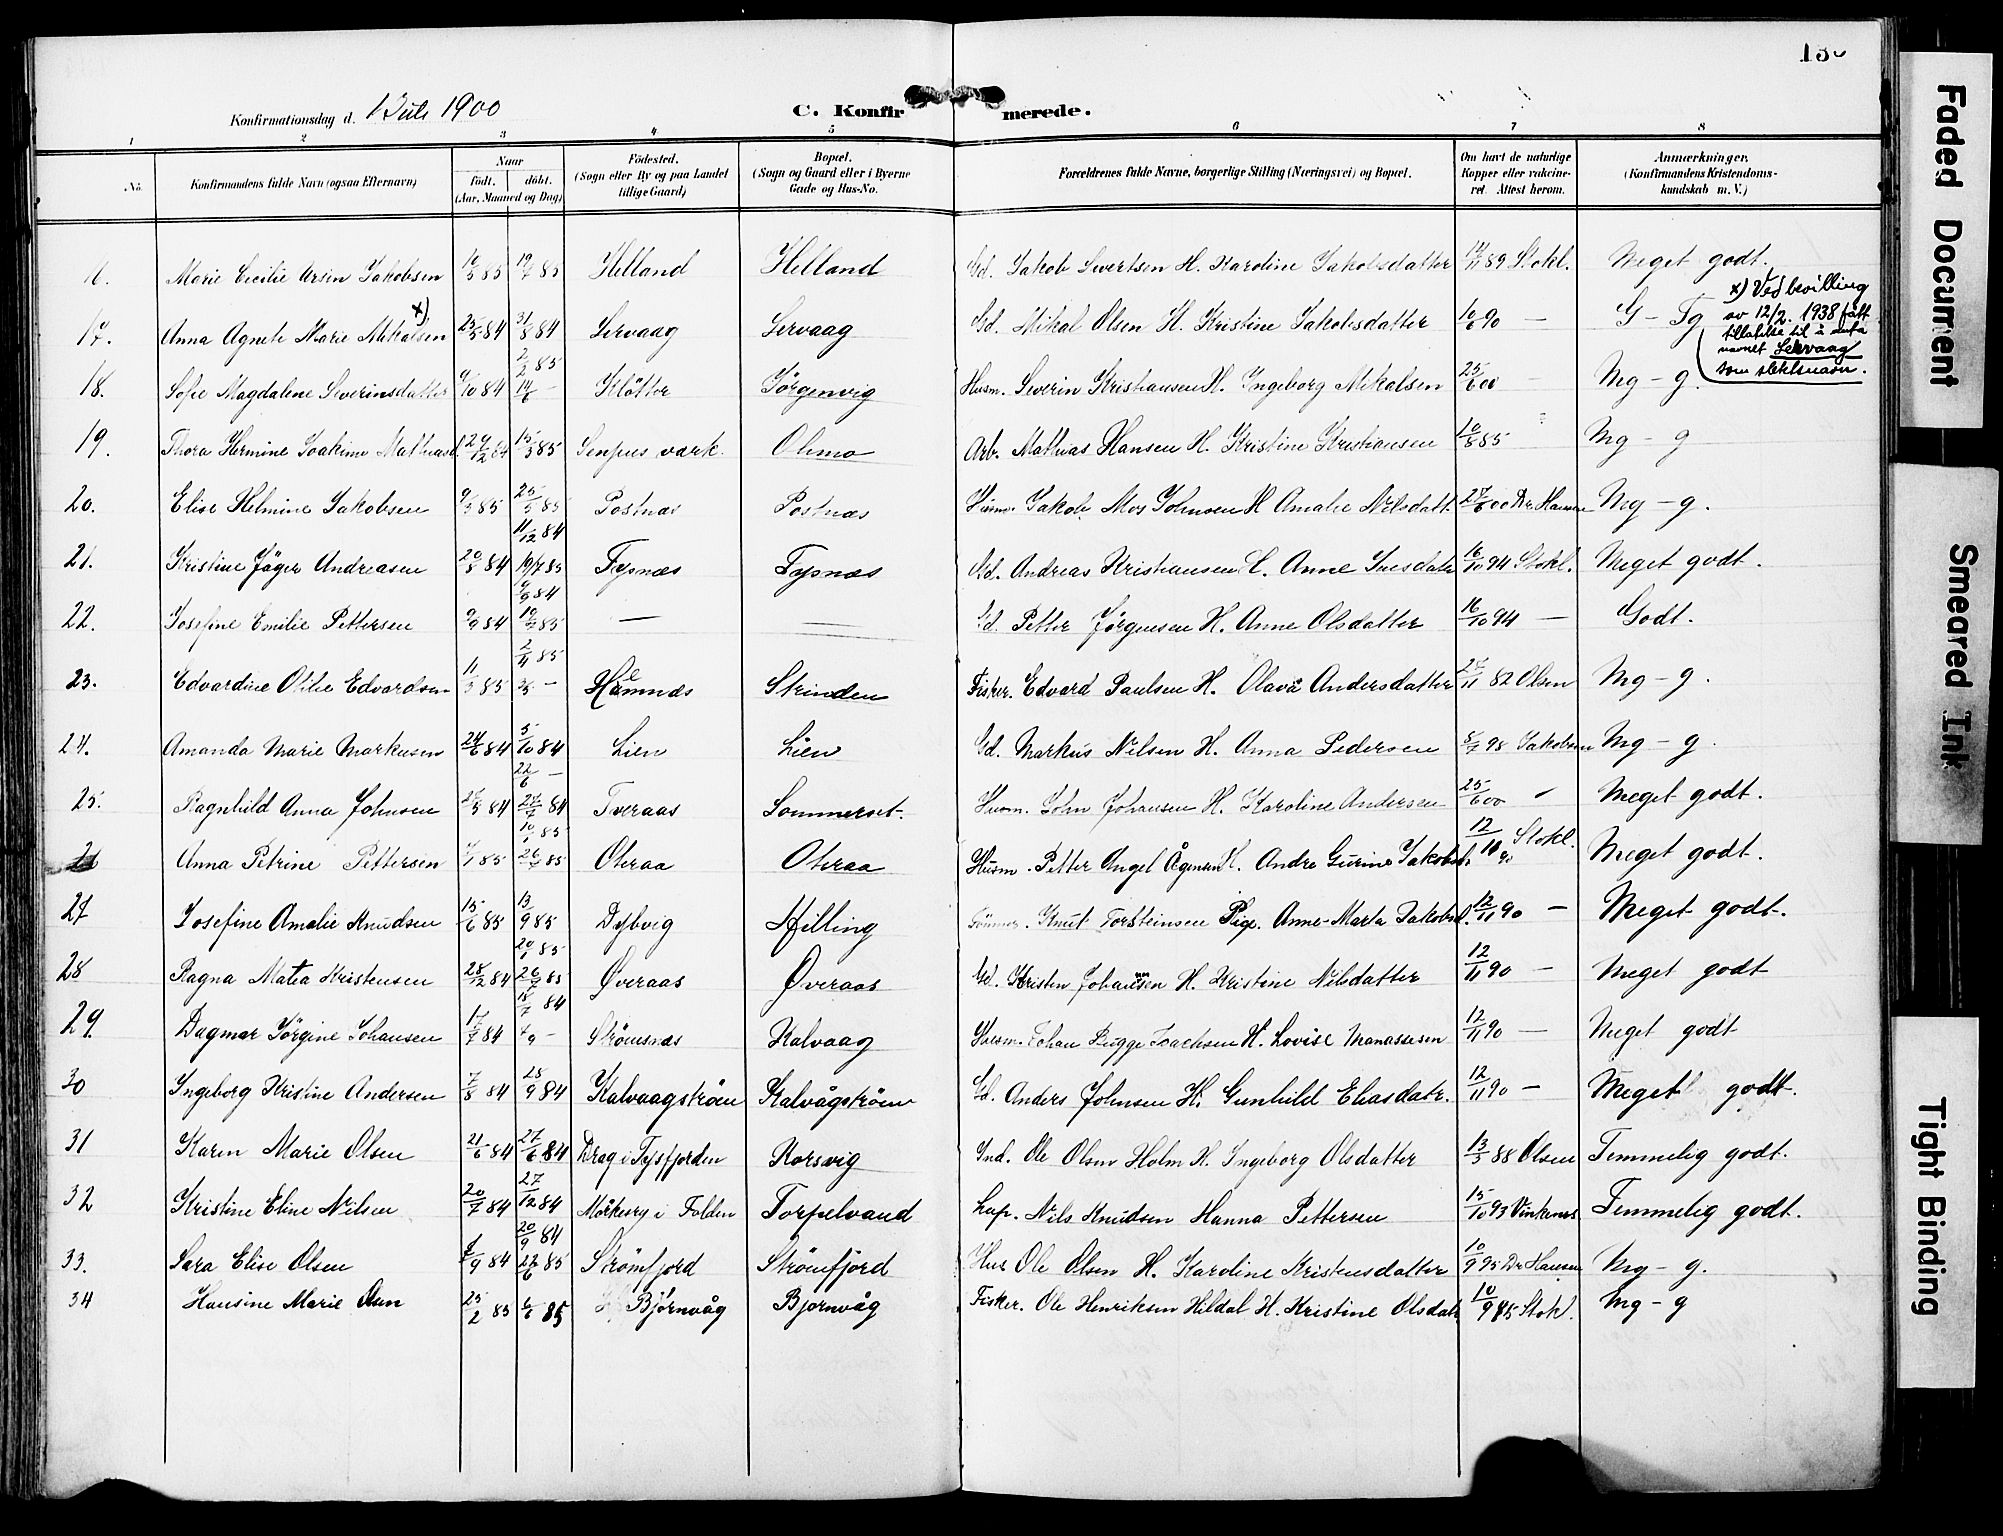 136
Konfirmationsdag d. 1 Juli 1900
C. Konfirmerede.
1 2 3 4 5 6 7 8
No. Konfirmandens fulde Navn (ogsaa Efternavn) Naar født. døbt. (Aar, Maaned og Dag) Fødested. (Sogn eller By og paa Landet tillige Gaard) Bopæl. (Sogn og Gaard eller i Byerne Gade og Hus-No. Forældrenes fulde Navne, borgerlige Stilling (Næringsvei) og Bopæl. Om havt de naturlige Kopper eller vakcineret. Attest herom. Anmærkninger. (Konfirmandens Kristendomskundskab m. V.)
16. Marie Cecilie Arsin Jakobsen 85 19/7 85 Helland Helland Gd. Jakob Sivertsen H. Karoline Jakobsdatter 89 Stokl. Meget godt.
17. Anna Agnete Marie Mikalsen x) 25/5 84 31/8 84 Servaag Servaag Gd. Mikal Olsen H. Kristine Jakobsdatter 10/6 90 — G - Tg
x) Ved bevilling av 12/2. 1938 fått tillatelse til å anta navnet Servaag som slektsnavn.
18. Sofie Magdalene Severinsdatter 9/10 84 2/2 85 14/6 — Kløtter Jørgenvig Husm. Severin Kristiansen H. Ingeborg Mikalsen 25/6 00 Mg - g.
19. Thora Hermine Joakime Mathiasd. 29/12 84 15/3 85 værk Olsmo Arb. Mathias Hansen H. Kristine Kristiansen 10/8 85 Mg - g
20. Elise Helmine Jakobsen 9/3 85 25/5 85 Postnæs Postnæs Husm. Jakob Mos Johnsen H Amalie Nilsdatt. 27/6 00 Dr. Hansen Mg - g.
21. Kristine Jäger Andreasen 20/8 84 11/12 84 19/7 85 Fypnæs Fypnæs Gd. Andreas Kristiansen H. Anne 16/10 94 Stokl. Meget godt.
22. Josefine Emilie Pettersen 9/9 84 9/9 84 19/7 85 — — Gd. Petter Jørgensen H. Anne Olsdatter 16/10 94 — Godt.
23. Edvardine Otilie Edvardsen 11/3 85 2/4 85 — Hamnæs Strinden Fisker. Edvard Paulsen H. Olava Andersdatter 82 Olsen Mg - g.
24. Amanda Marie Markusen 24/6 84 5/10 84 Lien Lien Gd. Markus Nilsen H. Anna Pedersen 8/7 98 Jakobsen Mg - g.
25. Ragnhild Anna Johnsen 84 22/6 — 27/7 84 Tveraas Sommerset. Husm. John Johansen H. Karoline Andersen 25/6 00 Meget godt.
26 Anna Petrine Pettersen 85 10/1 85 26/7 85 Oteraa Oteraa Husm. Petter Angel Ågesen H. Andre Gurine Jakobsd. 12/10 90 Stokl. Meget godt.
27 Josefine Amalie Knudsen 15/6 85 13/9 85 Dybvig Hilling Knut Torsteinsen Pige. Anne-Marta Jakobsd. 12/11 90 — Meget godt.
28 Ragna Matea Kristensen 28/12 84 20/1 85 26/7 85 Øveraas Øveraas Gd. Kristen Johannsen H. Kristine Nilsdatter 12/11 90 — Meget godt
29. Dagmar Jørgine Johansen 17/7 84 18/7 84 /9 — Strømsnæs Kalvaag Husm. Johan Rugge Joachsen H. Lovise Manassesen 12/11 90 — Meget godt
30 Ingeborg Kristine Andersen 7/8 84 28/9 84 Kalvaagstrøm Kalvågstrøm Gd. Anders Johnsen H. Gunhild Eliasdatr. 12/11 90 — Meget godt.
31 Karen Marie Olsen 21/6 84 27/6 84 Drag i Tysfjorden Korsvig Ind. Ole Olsen Holm H. Ingeborg Olsdatter 13/3 88 Olsen Temmelig godt.
32 Kristine Eline Nilsen 20/7 84 27/12 84 Mørkesv i Folden Torpelvand Lap. Nils Knudsen Hanna Pettersen 15/10 93 Vinkenæs Temmelig godt.
33. Sara Elise Olsen 84 20/9 84 85 Strømfjord Strømfjord Hus Ole Olsen H. Karoline Kristensdatter 10/9 95 Dr Hansen Mg - g.
34 Hansine Marie Olsen 25/2 85 6/6 85 Bjørnvåg Bjørnvåg Fisker. Ole Henriksen Hildal H. Kristine Olsdatr. 10/9 Stokl. Mg - g
Faded Document
Smeared Ink
Tight Binding